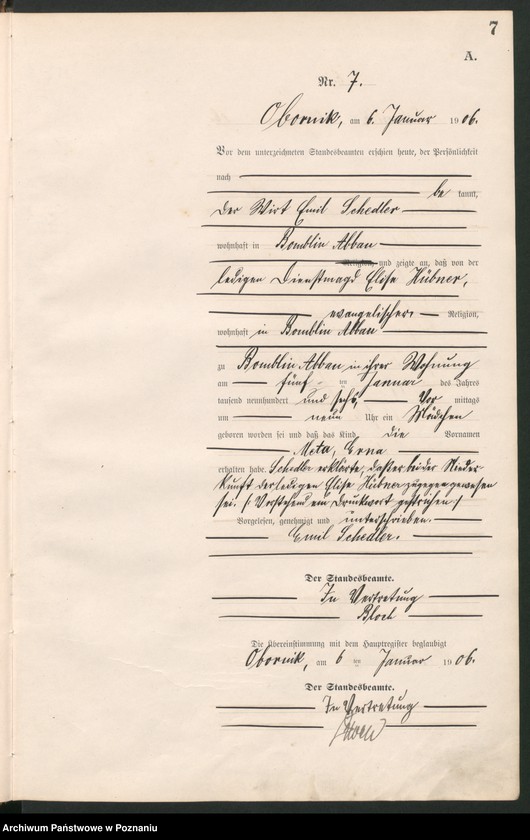 7
A.
Nr. 7.
Obornik, am 6. Januar 1906.
Vor dem unterzeichneten Standesbeamten erschien heute, der Persönlichkeit
nach
be kannt,
der Wirt Emil Schedler
wohnhaft in Bomblin Abbau
und zeigte an, daß von der
ledigen Dienstmagd Elise Hübner,
evangelischer Religion,
wohnhaft in Bomblin Abbau
zu Bomblin Abbau in ihrer Wohnung
am fünf ten Januar des Jahres
tausend neunhundert und sechs, Vor mittags
um neun Uhr ein Mädchen
geboren worden sei und daß das Kind die Vornamen
Meta, Erna
erhalten habe. Schedler erklärte, daß er bei der Nieder-
kunft der ledigen Elise Hübner zugegen gewesen
sei. (: Vorstehend ein Druckwort gestrichen :)
Vorgelesen, genehmigt und unterschrieben.
Emil Schedler.
Der Standesbeamte.
In Vertretung
Die Übereinstimmung mit dem Hauptregister beglaubigt
Obornik, am 6 ten Januar 1906.
Der Standesbeamte.
In Vertretung
Archiwum Państwowe w Poznaniu